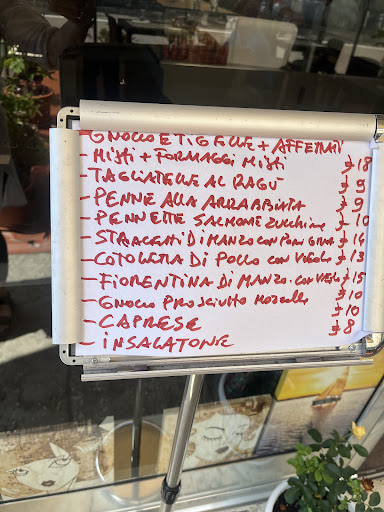 - GNOCCO E TIGELLE + AFFETTATI
- MISTI + FORMAGGI MISTI € 18
- TAGLIATELLE AL RAGÙ € 9
- PENNE ALLA ARRABBIATA € 9
- PENNETTE SALMONE ZUCCHINE € 10
- STRACCETTI DI MANZO CON POM GRANA € 14
- COTOLETTA DI POLLO CON € 13
- FIORENTINA DI MANZO. CON € 15
- GNOCCO PROSCIUTTO MOZZELLA € 10
- CAPRESE € 10
- INSALATONE € 8